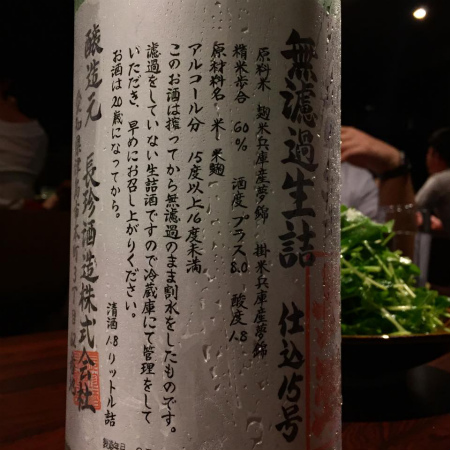 無濾過生詰 仕込15号
原料米 麹米兵庫産夢錦 掛米兵庫産夢錦
精米歩合 60% 酒度 プラス8.0 酸度1.8
原材料名 米・米麹
アルコール分 15度以上16度未満
このお酒は搾ってから無濾過のまま割水をしたものです。
濾過をしていない生詰酒ですので冷蔵庫にて管理をして
いただき、早めにお召し上がりください。
お酒は20歳になってから。
清酒1.8リットル詰
醸造元 長珍酒造株式会社
愛知県津島市本町3丁目
製造年月